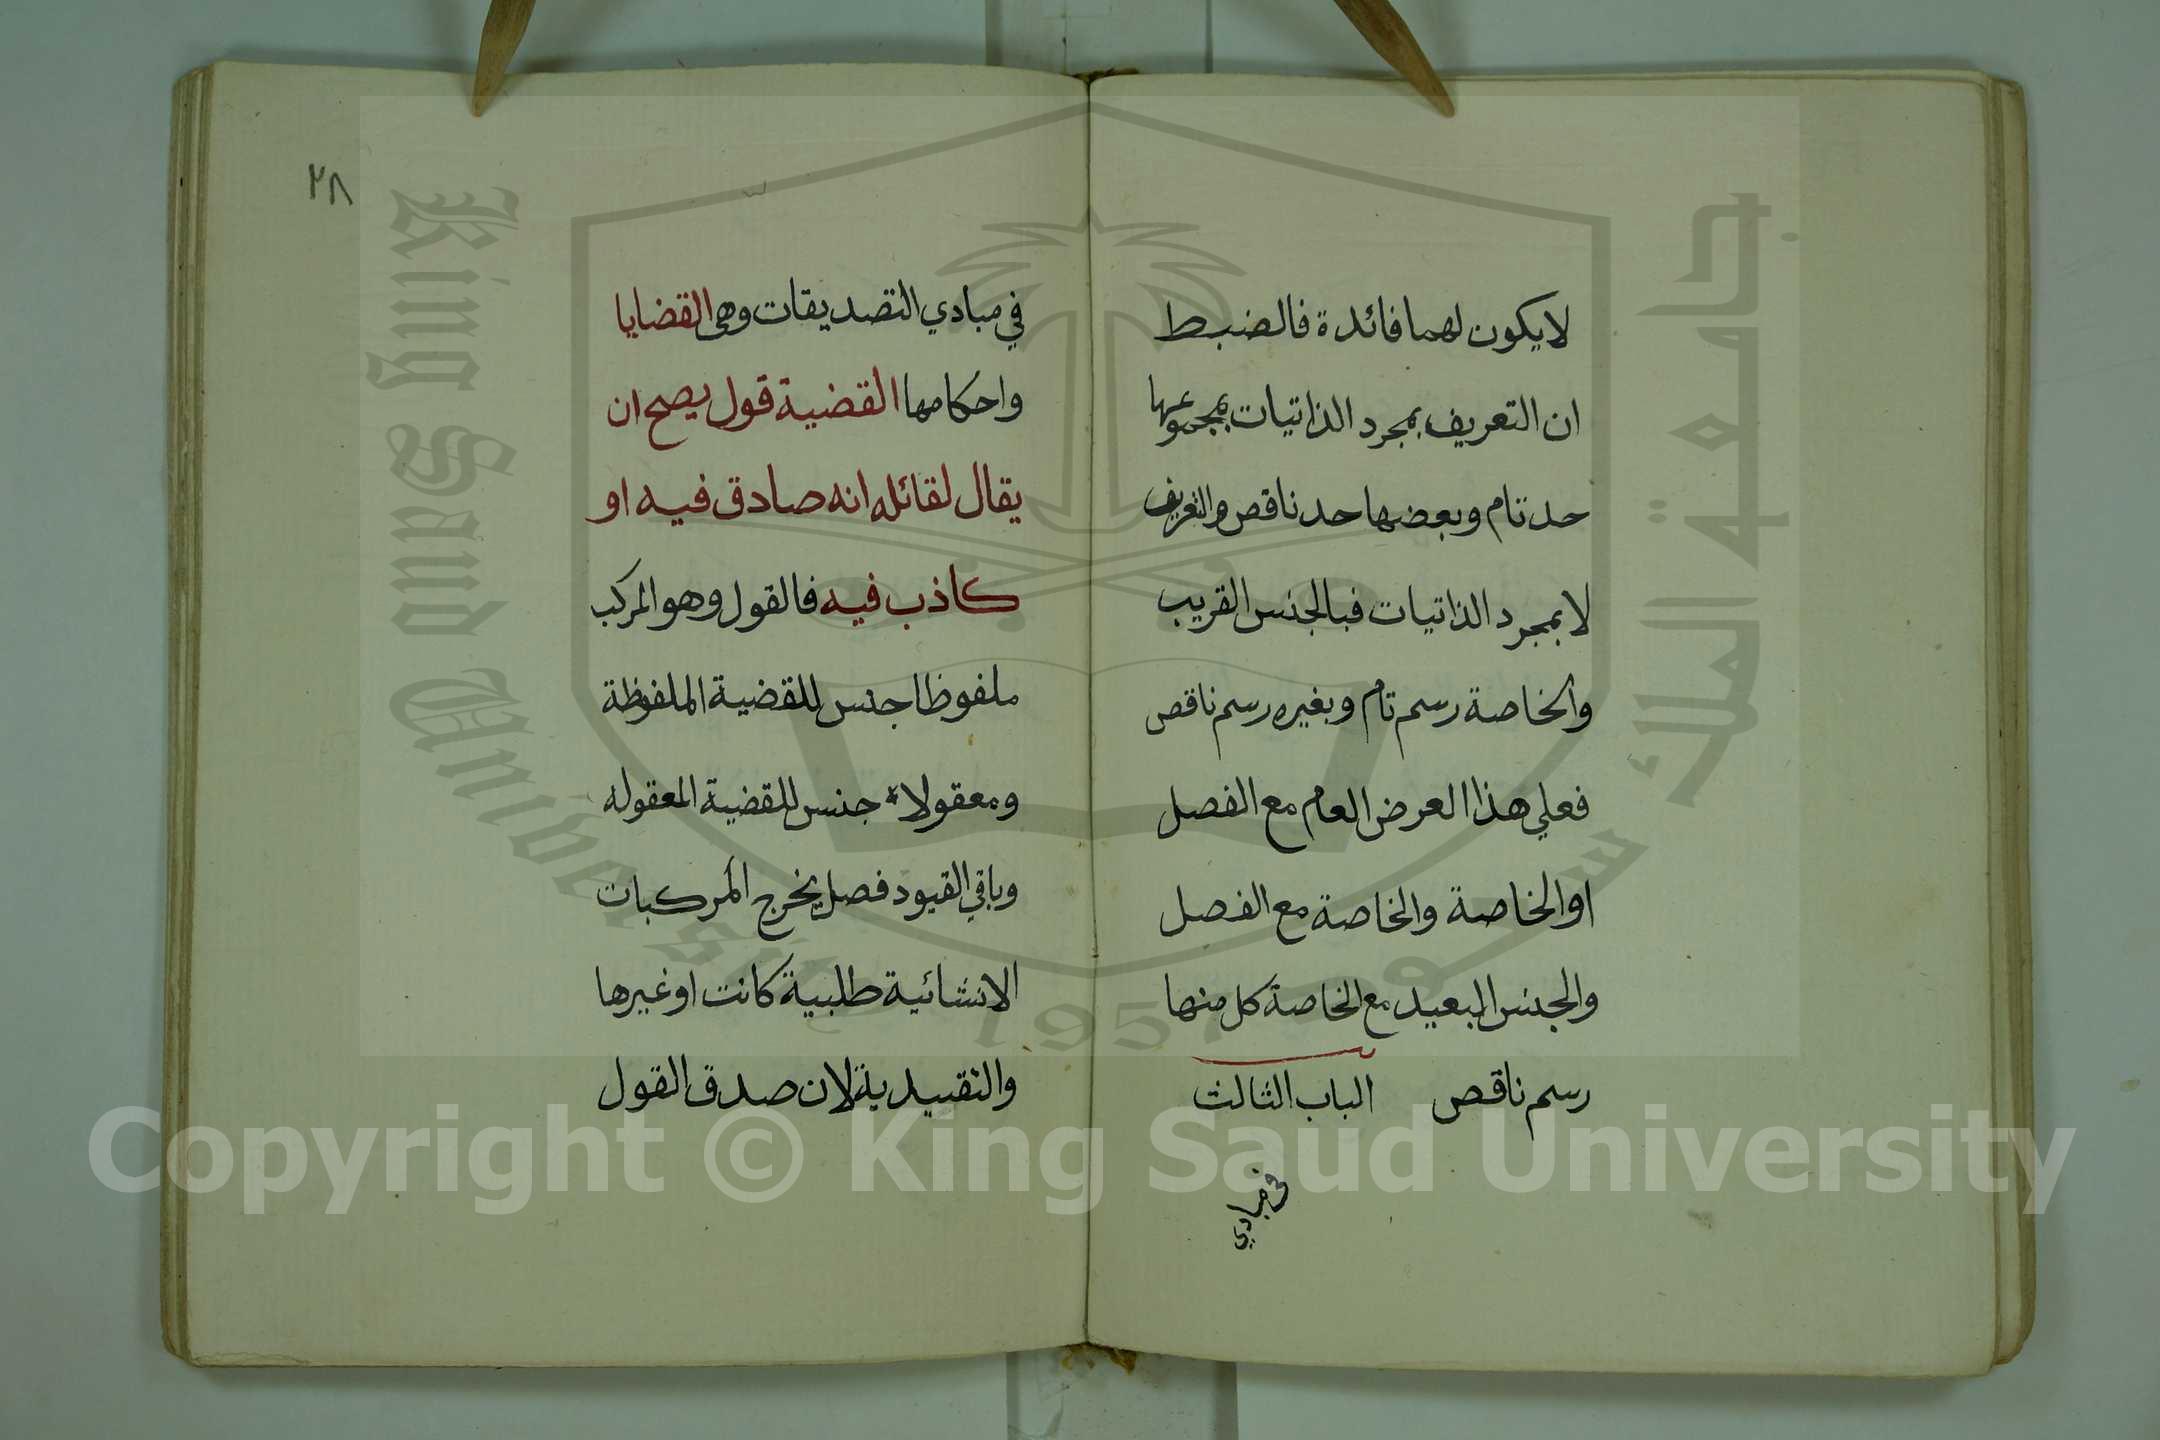 لايكون لهما فائدة فالضبط
ان التعريف بمجرد الذاتيات بمجموعها
حد تام وبعضها حد ناقص والتعريف
لا بمجرد الذاتيات فبالجنس القريب
والخاصة رسم تام وبغيره رسم ناقص
فعلي هذا العرض العام مع الفصل
او الخاصة والخاصة مع الفصل
والجنس البعيد مع الخاصة كل منها
رسم ناقص الباب الثالث
في مبادي
٢٨
في مبادي التصديقات وهى القضايا
واحكامها القضية قول يصح ان
يقال لقائله انه صادق فيه او
كاذب فيه فالقول وهو المركب
ملفوظا جنس للقضية الملفوظة
ومعقولا جنس للقضية المعقوله
وباقي القيود فصل يخرج المركبات
الانشائية طلبية كانت او غيرها
والتقييدية لان صدق القول
King Saud University
جامعة الملك سعود
1957
Copyright © King Saud University